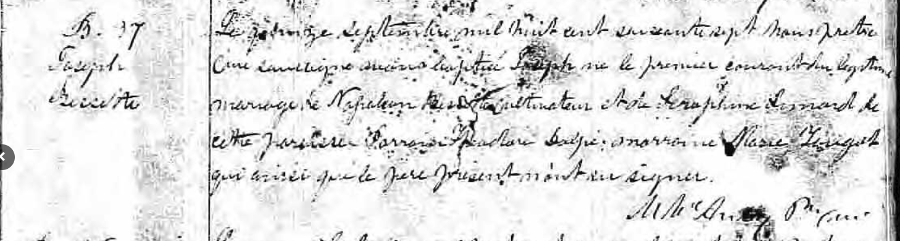 B. 37
Joseph
Le quinze Septembre mil huit cent soixante sept nous prêtre
Curé soussigné avons baptisé Joseph né le premier courant du légitime
mariage de Napoléon cultivateur et de Séraphine Simard de
cette paroisse Parrain marraine Marie
qui ainsi que le père présent n'ont su signer.
Ptre Curé